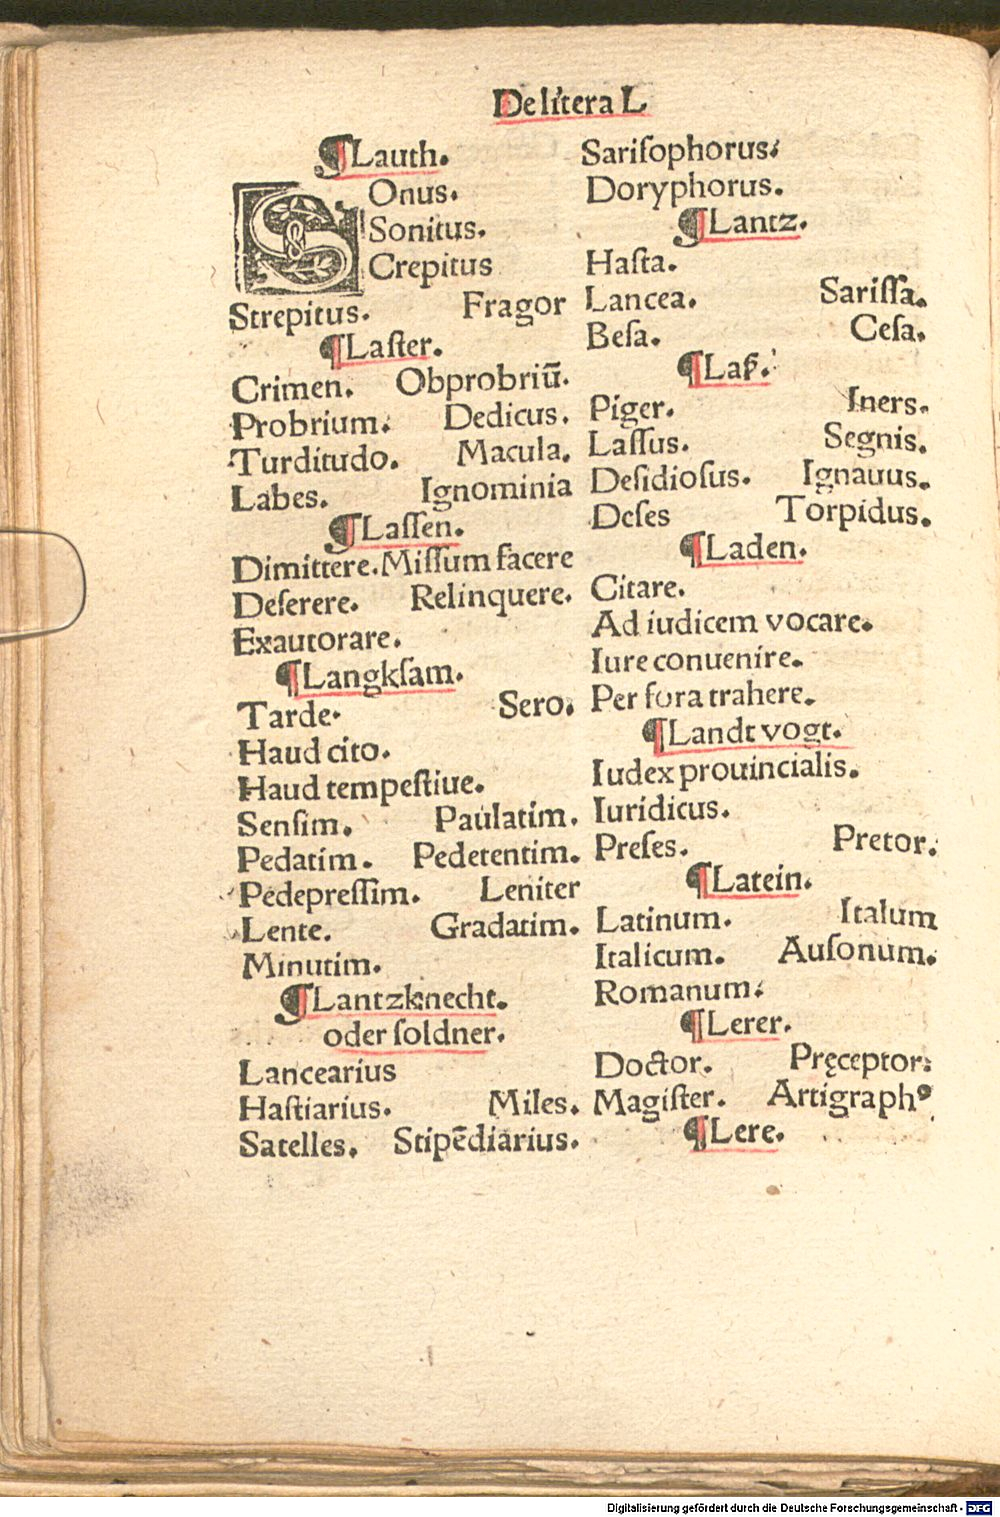 De litera L
¶Lauth.
SOnus.
Sonitus.
Crepitus
Strepitus. Fragor
¶Laſter.
Crimen. Obprobriū.
Probrium. Dedicus.
Turditudo. Macula.
Labes. Ignominia
¶Laſſen.
Dimittere. Miſſum facere
Deſerere. Relinquere.
Exautorare.
¶Langkſam.
Tarde. Sero.
Haud cito.
Haud tempeſtiue.
Senſim. Paulatim.
Pedatim. Pedetentim.
Pedepreſſim. Leniter
Lente. Gradatim.
Minutim.
¶Lantzknecht.
oder ſoldner.
Lancearius
Haſtiarius. Miles.
Satelles. Stipēdiarius.
Sariſophorus.
Doryphorus.
¶Lantz.
Haſta.
Lancea. Sariſſa.
Beſa. Ceſa.
Piger. Iners.
Laſſus. Segnis.
Deſidioſus. Ignauus.
Deſes Torpidus.
¶Laden.
Citare.
Ad iudicem vocare.
Iure conuenire.
Per fora trahere.
¶Landt vogt.
Iudex prouincialis.
Iuridicus.
Preſes. Pretor.
¶Latein.
Latinum. Italum
Italicum. Auſonum.
Romanum.
¶Lerer.
Doctor. Pręceptor.
Magiſter. Artigraphꝰ
¶Lere.
Digitalisierung gefördert durch die Deutsche Forschungsgemeinschaft - DFG